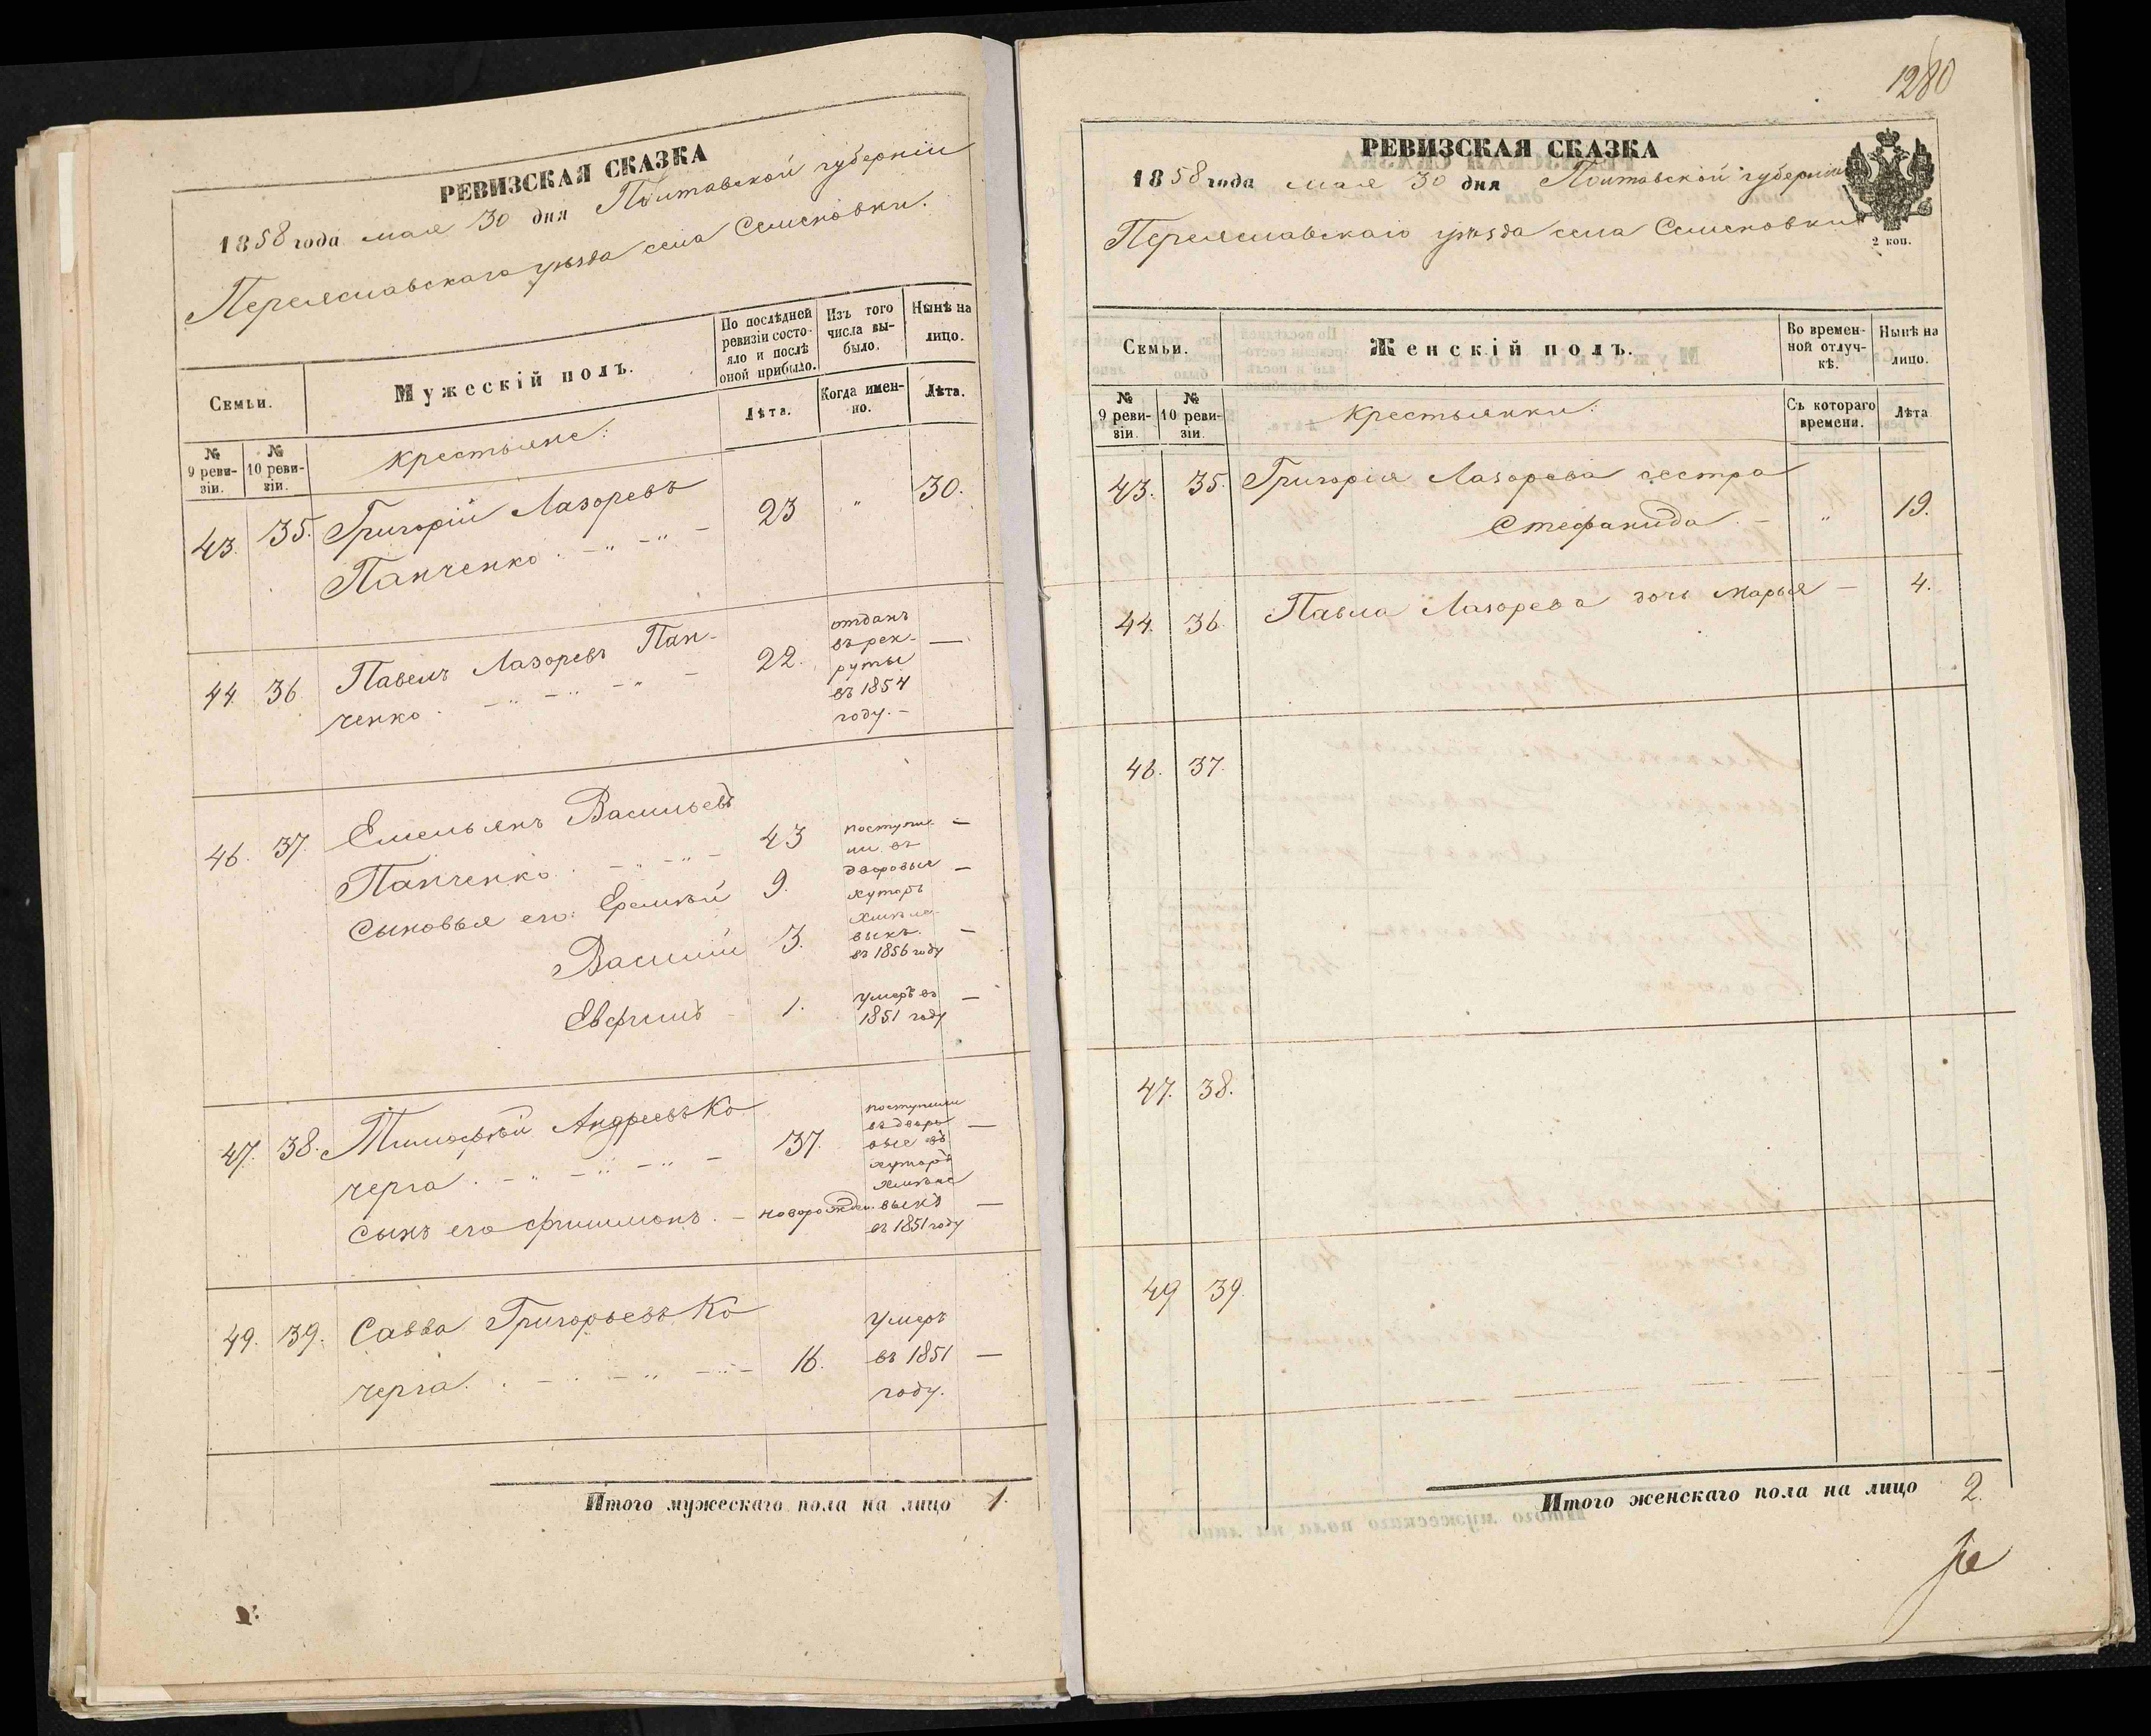 РЕВИЗСКАЯ СКАЗКА
1858 года мая 30 дня Полтавской губерніи
Переяславскаго уѣзда села Семеновки.
Семьи.
Мужескій полъ.
По послѣдней ревизіи состояло и послѣ оной прибыло.
Изъ того числа выбыло.
Нынѣ на лицо.
№ 9 ревизіи.
№ 10 ревизіи.
Крестьяне:
Лѣта.
Когда именно.
Лѣта.
43. 35. Григорій Лазоревъ
Панченко 23 " 30.
44. 36 Павелъ Лазоревъ Пан-
ченко 22. отданъ
въ рек-
руты
въ 1854
году. —
46. 37. Емельянъ Васильевъ
Панченко 43 поступи-
ли въ
Сыновья его: Еремѣй 9. дворовые
хуторъ
Василій 3.
въ 1856 году
Евфимъ 1. умеръ въ
1851 году
47. 38. Тимофѣй Андреевъ Ко
черга 37. поступили
въ дворо
вые въ
хуторъ
сынъ его Филимонъ. — новорожден.
въ 1851 году
49. 39. Савва Григорьевъ Ко
черга 16. умеръ
въ 1851
году.
Итого мужескаго пола на лицо 1.
1280
РЕВИЗСКАЯ СКАЗКА
1858 года мая 30 дня Полтавской губерніи
Переяславскаго уѣзда села Семеновки
2 коп.
Семьи.
Женскій полъ.
Во временной отлучкѣ.
Нынѣ на лицо.
№ 9 ревизіи.
№ 10 ревизіи.
Крестьянки:
Съ котораго времени.
Лѣта
43. 35. Григорія Лазорева сестра
Стефанида. — " 19.
44. 36. Павла Лазорева дочь Марья — 4.
46. 37.
47. 38.
49 39.
Итого женскаго пола на лицо 2.